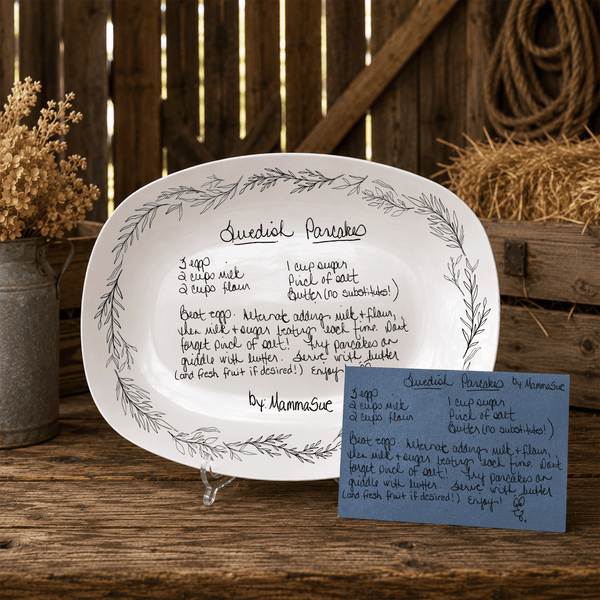 Swedish Pancakes
3 eggs
2 cups milk
2 cups flour
1 cup sugar
Pinch of salt
Butter (no substitutes!)
Beat eggs. Alternate adding milk + flour,
then milk + sugar beating each time. Don't
forget pinch of salt! Fry pancakes on
griddle with butter. Serve with butter
(and fresh fruit if desired!) Enjoy!
by: MammaSue
Swedish Pancakes by MammaSue
3 eggs
2 cups milk
2 cups flour
1 cup sugar
Pinch of salt
Butter (no substitutes!)
Beat eggs. Alternate adding milk + flour,
then milk + sugar beating each time. Don't
forget pinch of salt! Fry pancakes on
griddle with butter. Serve with butter
(and fresh fruit if desired!) Enjoy!